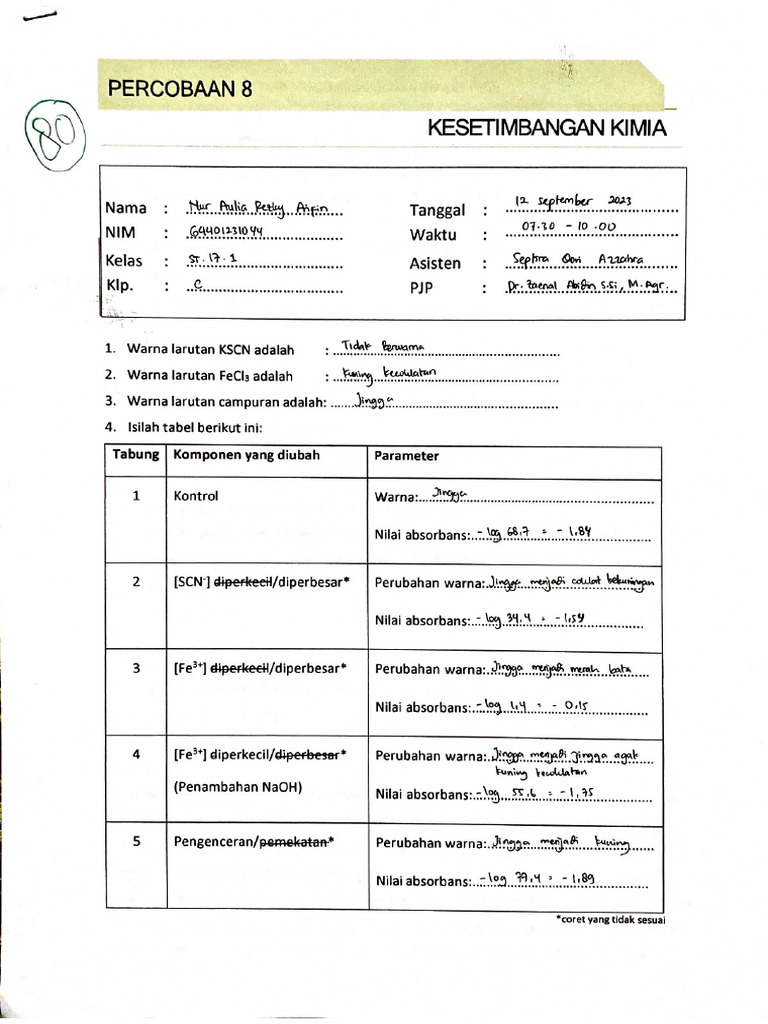 80
PERCOBAAN 8
KESETIMBANGAN KIMIA
Nama : Nur Aulia Rezky Aripin
NIM : G4401231044
Kelas : ST.17.1
Klp. : C
Tanggal : 12 september 2023
Waktu : 07.30 - 10.00
Asisten : Septira Qori Azzahra
PJP : Dr. Zaenal Abidin S.Si, M.Agr.
1. Warna larutan KSCN adalah : Tidak Berwarna
2. Warna larutan FeCl₃ adalah : kuning kecoklatan
3. Warna larutan campuran adalah: Jingga
4. Isilah tabel berikut ini:
Tabung Komponen yang diubah Parameter
1 Kontrol Warna: Jingga
Nilai absorbans: -log 68,7 = -1,84
2 [SCN⁻] diperkecil/diperbesar* Perubahan warna: Jingga menjadi coklat kekuningan
Nilai absorbans: -log 34,4 = -1,54
3 [Fe³⁺] diperkecil/diperbesar* Perubahan warna: Jingga menjadi merah bata
Nilai absorbans: -log 1,4 = -0,15
4 [Fe³⁺] diperkecil/diperbesar* Perubahan warna: Jingga menjadi jingga agak
kuning kecoklatan
(Penambahan NaOH) Nilai absorbans: -log 55,6 = -1,75
5 Pengenceran/pemekatan* Perubahan warna: Jingga menjadi kuning
Nilai absorbans: -log 79,4 = -1,89
*coret yang tidak sesuai